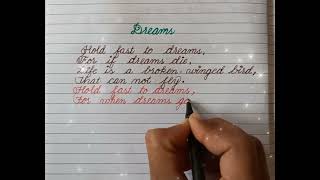 Dreams
Hold fast to dreams,
For if dreams die,
Life is a broken winged bird,
That can not fly.
Hold fast to dreams,
For when dreams go